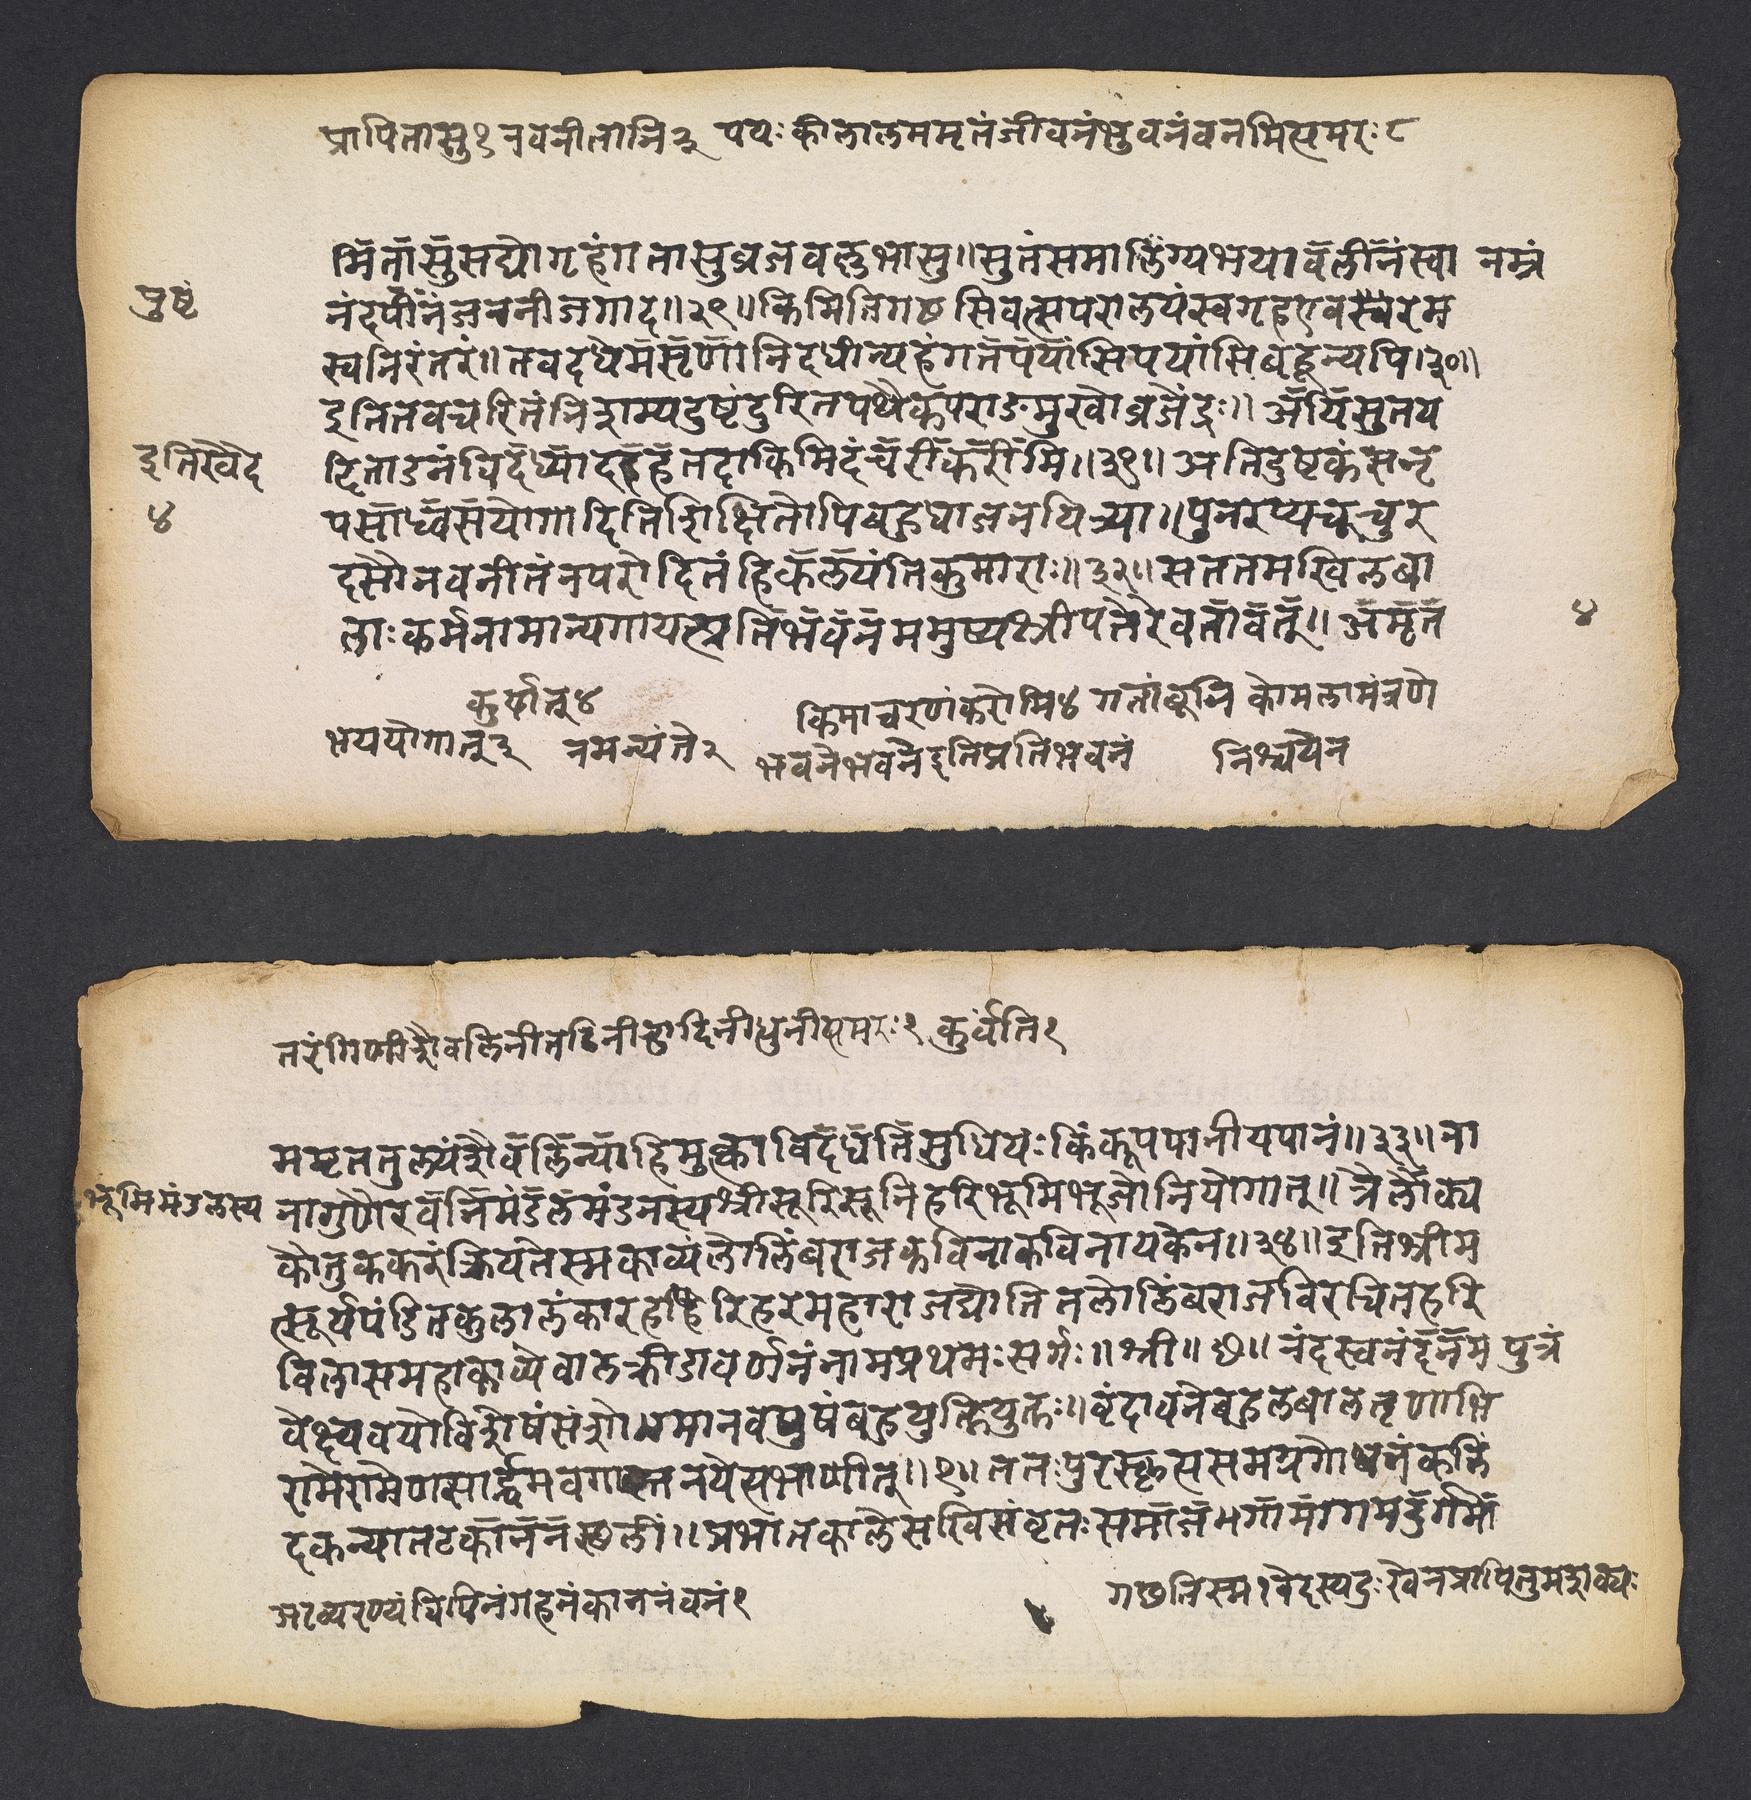 प्रापितासु१ नवनीतानि३ पयः कीलालममृतंजीवनंभुवनंवनमित्यमरः८
मितासुसद्योगृहंगतासुव्रजवल्लभासु॥सुतंसमालिंग्यभयावलीनंस्वा नम्रं
पुष्टं
नंदपीनंजननीजगाद॥२९॥किमितिगछसिवत्सपरालयंस्वगृहएवस्थिरेम
स्वनिरंतरं॥तवददेमसृणानिदधीन्यहंगतपयांसिपयांसिबहून्यपि॥३०॥
इतितवचरितंनिशम्यदुष्टंदुरितपथैकपराङमुखोव्रजेंद्रः॥अयिसुतय
इतिखेदे
ष्टिताडनंविदध्यादहहतदाकिमिदंचरीकरीमि॥३१॥अतिदुष्टकंसनृ
४
पसाध्वसयोगादितिशिक्षितोपिबहुधाजनयित्र्या॥पुनरप्यचूचुर
दसौनवनीतंनपरोदितंहिकलयंतिकुमाराः॥३२॥सततमखिलबा
लाःकर्मनामान्यगायत्प्रतिभवनममुष्यश्रीपतेरेवतावत्॥अमृत
४
कुर्यात्४ किमाचरणंकरोमि४ गतांबूनि कोमलामंत्रणे
भययोगात्३ नमन्यंते२ भवनेभवनेइतिप्रतिभवनं निश्चयेन
तरंगिणीशैवलिनीतटिनीह्रादिनीधुनीत्यमरः१ कुर्वंति१
ममृततुल्यंशैवलिन्याहिमुत्काविदधतिसुधियःकिंकूपपानीयपानं॥३३॥ना
भूमिमंडलस्य
नागुणैरवनिमंडलमंडनस्यश्रीसूरिसूनिहरिभूमिभूजोनियोगात्॥त्रैलोक्य
कौतुककरंक्रियतेस्मकाव्यंलोलिंबराजकविनाकविनायकेन॥३४॥इतिश्रीम
त्सूर्यपंडितकुलालंकारहरिहरेमहाराजद्योतितलोलिंबराजविरचितहरि
विलासमहाकाव्येबालक्रीडावर्णनंनामप्रथमःसर्गः॥श्री॥छ॥नंदस्वनंदनम पुत्रं
वेक्ष्यवयोविशेषंसंशोधमानवपुषंबहुयुक्तियुक्तः॥वृंदावनेबहुलबालतृणाभि
रामेरामेणसार्द्धमवगास्तनयेत्यभाणीत्॥१॥ततःपुरस्कृत्यसमग्रगोधनंकलिं
दकन्यातटकाननस्थलीं॥प्रभातकालेसखिसंवृतःसमाजमगामागमदुर्गमो
अटव्यरण्यंविपिनंगहनंकाननंवनं१ गछतिस्म।वेदस्यदुःखेनप्रापितुमशक्यः